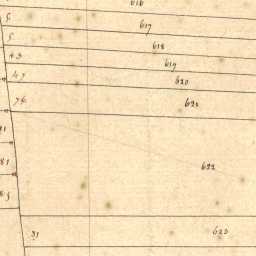 616
5 617
5 618
43 619
47 620
76 621
81
81 622
85
31 623